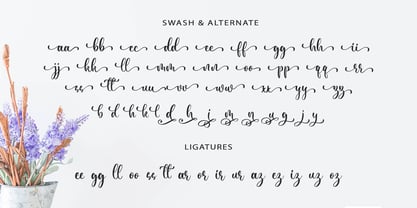 SWASH & ALTERNATE
aa bb cc dd ee ff gg hh ii
jj hh ll mm nn oo pp qq rr
ss tt uu vv ww xx yy zz
b d h k l d j m n y g j y
LIGATURES
ee gg ll oo ss tt ar or ir ur az ez iz uz oz